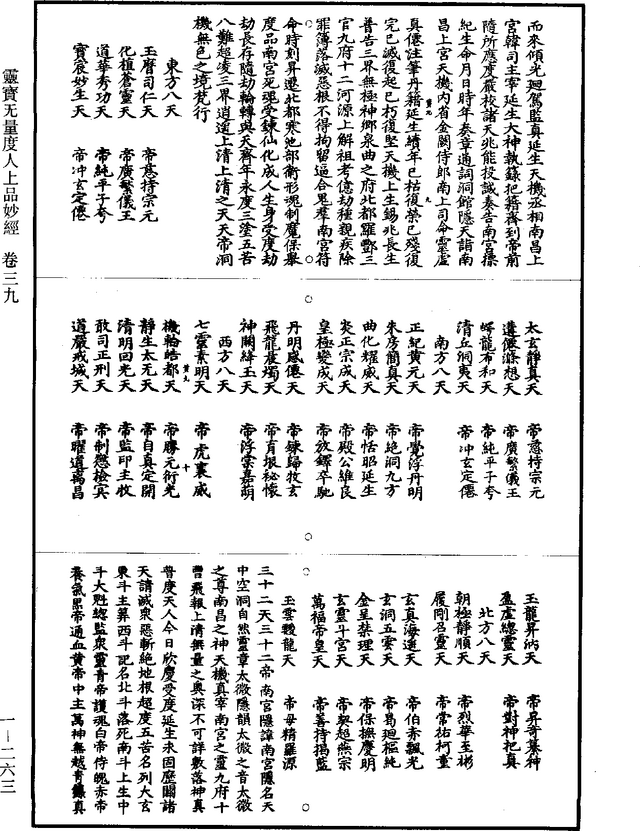 而來傾光迴駕監真延生天機丞相南昌上
宮韓司主宰延生大神執籙把籍齊到帝前
隨所應度嚴校諸天兆能投誠奏告南宮操
紀生命月日時年奏章通詞洞館隱天詣南
昌上宮天機內省金闕侍郎南上司命靈虛
真僊注筆丹籍延生續年已枯復榮已殘復
完已滅復起已朽復堅天機上生錫兆長生
普告三界無極神鄉泉曲之府北都羅酆三
官九府十二河源上解祖考億劫種親疾除
罪簿落滅惡根不得拘留逼合鬼羣南宮符
命時刻昇遷北都寒池部衛形魂制魔保舉
度品南宮死魂受鍊仙化成人生身受度劫
劫長存隨劫輪轉與天齊年永度三塗五苦
八難超凌三界逍遙上清上清之天天帝洞
機無色之境梵行
東方八天
玉曆司仁天　帝慈持宗元
化植蒼靈天　帝廣繁儀王
道華秀功天　帝純平子夸
寶宸妙生天　帝冲玄定僊
太玄靜真天　帝慈持宗元
遺僊滌想天　帝廣繁儀王
崿龍布和天　帝純平子夸
清丘洞夷天　帝冲玄定僊
南方八天
正紀黃元天　帝覺浮丹明
朱房簡真天　帝絶洞九方
曲化耀威天　帝恬昭延生
炎正宗成天　帝殿公維良
皇極變成天　帝放鐸卒馳
丹明感僊天　帝鍊歸牧玄
飛龍度燭天　帝育垠祕懷
神闕絳玉天　帝浮霂嘉萌
西方八天
七靈素明天　帝虎襄威
機輪皓都天　帝勝元衍光
靜生太元天　帝自真定開
清明回光天　帝監印主收
敢司正刑天　帝制愆檢賓
道嚴戒城天　帝曜道萬昌
玉龍昇納天　帝昇奇集神
盈虛總靈天　帝對神把真
北方八天
朝極靜順天　帝烈華至彬
履剛召靈天　帝常祐柯童
玄真海運天　帝伯青飄光
玄洞五雲天　帝易廻樞純
金呈柴理天　帝保撫慶明
玄靈斗宮天　帝契超燕宗
萬福帝皇天　帝善待揭藍
玉雲騣龍天　帝毋精羅源
三十二天三十二帝南宮隱諱南宮隱名天
中空洞自然靈章太微隱韻太微之音太微
之尊南昌之神天機真宰南宮之靈九府十
轡飛報上清無量之奥深不可詳敷落神真
普度天人今日欣慶受度延生永固歷關諸
天請滅衆惡斬絶地根超度五苦名列大玄
東斗主算西斗記名北斗落死南斗上生中
斗大魁總監衆靈青帝護魂白帝侍魄赤帝
養氣黑帝通血黃帝中主萬神無越青鎮真
靈寶无量度人上品妙經　卷三九
一－二六三